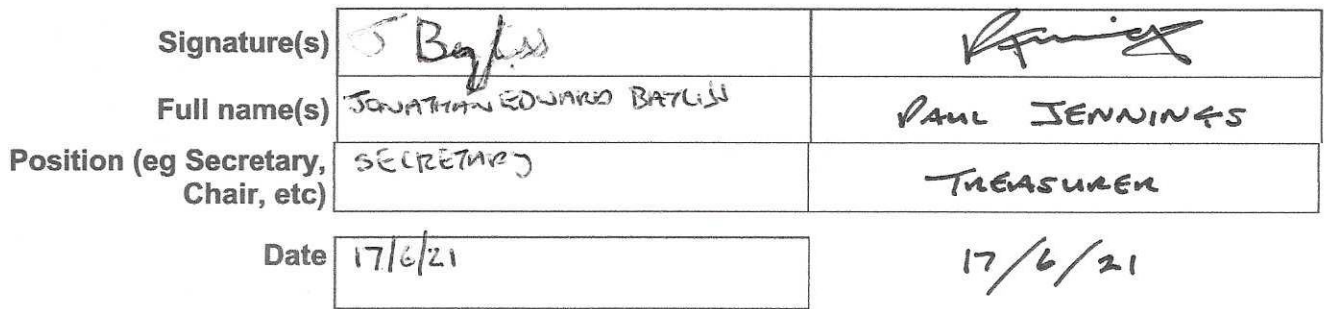 Signature(s) J Bayliss
Full name(s) JONATHAN EDWARD BAYLISS PAUL JENNINGS
Position (eg Secretary, SECRETARY TREASURER
Chair, etc)
Date 17/6/21 17/6/21